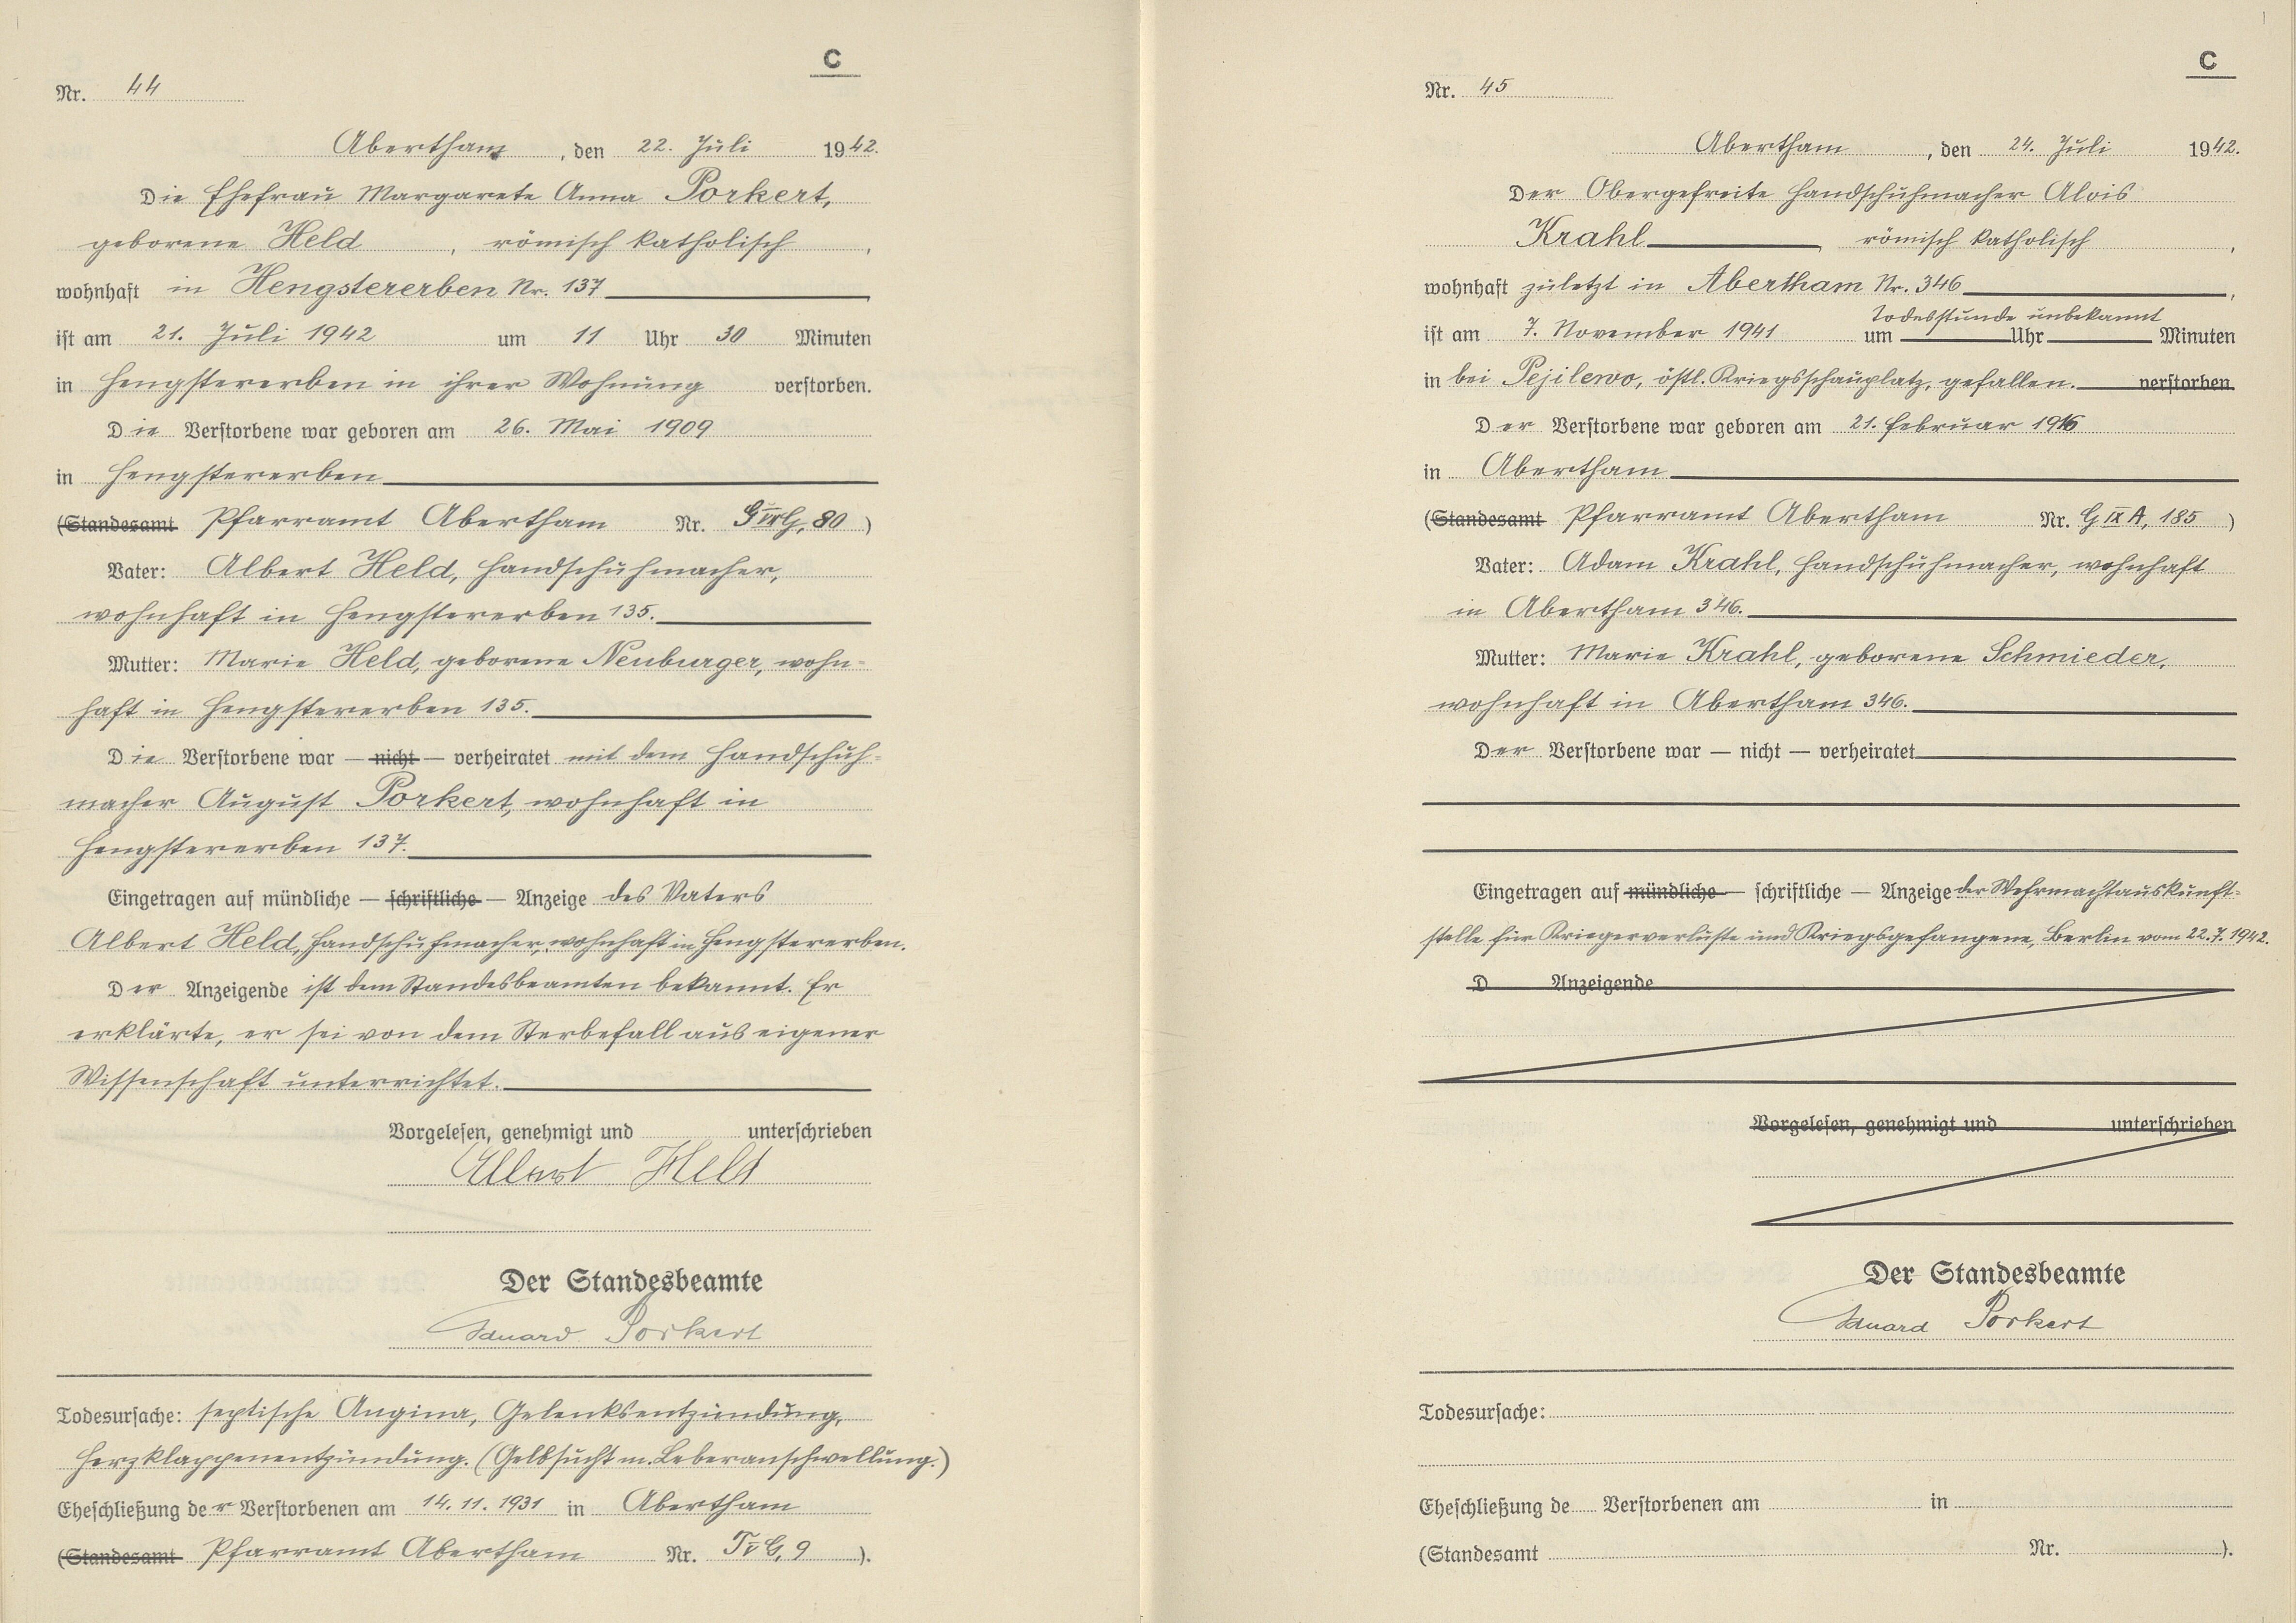 C
Nr. 44
Abertham, den 22. Juli 1942.
Die Ehefrau Margarete Anna Porkert,
geborene Held, römisch katholisch,
wohnhaft in Hengstererben Nr. 137
ist am 21. Juli 1942 um 11 Uhr 30 Minuten
in Hengstererben in ihrer Wohnung verstorben.
Die Verstorbene war geboren am 26. Mai 1909
in Hengstererben
(Standesamt Pfarramt Abertham Nr. 80)
Vater: Albert Held, Handschuhmacher,
wohnhaft in Hengstererben 135.
Mutter: Marie Held, geborene Neuburger, wohn-
haft in Hengstererben 135.
Die Verstorbene war — nicht — verheiratet mit dem Handschuh-
macher August Porkert, wohnhaft in
Hengstererben 137.
Eingetragen auf mündliche — schriftliche — Anzeige des Vaters
Albert Held, Handschuhmacher, wohnhaft in Hengstererben.
Der Anzeigende ist dem Standesbeamten bekannt. Er
erklärte, er sei von dem Sterbefall aus eigener
Wissenschaft unterrichtet.
Vorgelesen, genehmigt und unterschrieben
Albert Held
Der Standesbeamte
Eduard Porkert
Todesursache: septische Angina, Gelenksentzündung,
Herzklappenentzündung. (Gelbsucht m. Leberanschwellung.)
Eheschließung der Verstorbenen am 14.11.1931 in Abertham
(Standesamt Pfarramt Abertham Nr. 9).
C
Nr. 45
Abertham, den 24. Juli 1942.
Der Obergefreite Handschuhmacher Alois
Krahl, römisch katholisch,
wohnhaft zuletzt in Abertham Nr. 346,
Todesstunde unbekannt
ist am 7. November 1941 um Uhr Minuten
in bei Pejilewo, östl. Kriegsschauplatz, gefallen. verstorben.
Der Verstorbene war geboren am 21. Februar 1916
in Abertham
(Standesamt Pfarramt Abertham Nr. G IX A, 185)
Vater: Adam Krahl, Handschuhmacher, wohnhaft
in Abertham 346.
Mutter: Marie Krahl, geborene Schmieder,
wohnhaft in Abertham 346.
Der Verstorbene war — nicht — verheiratet
Eingetragen auf mündliche — schriftliche — Anzeige der Wehrmachtauskunft-
stelle für Kriegerverluste und Kriegsgefangene, Berlin vom 22.7.1942.
D Anzeigende
Vorgelesen, genehmigt und unterschrieben
Der Standesbeamte
Eduard Porkert
Todesursache:
Eheschließung de Verstorbenen am in
(Standesamt Nr. ).